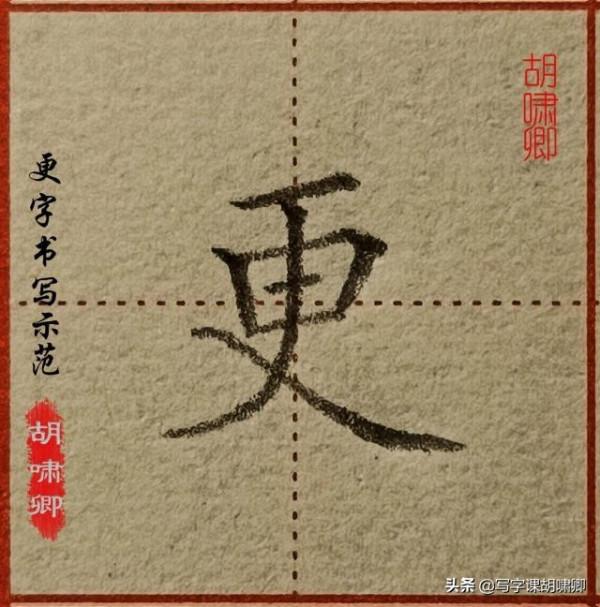 胡啸卿
更字书写示范
更
胡啸卿
头条 @写字课胡啸卿